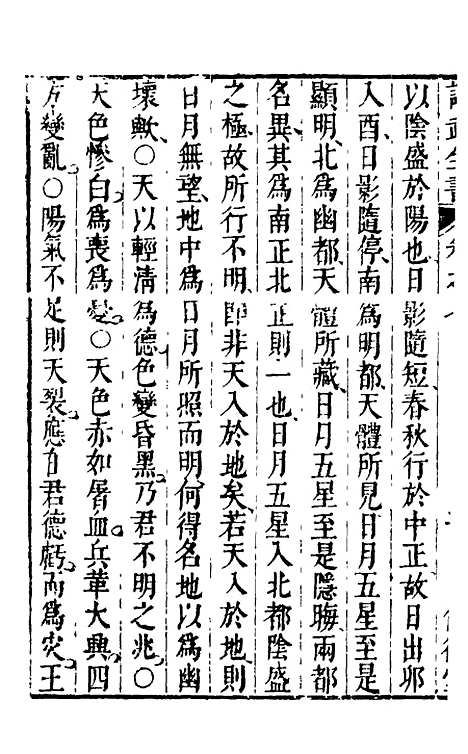 武全書
以陰盛於陽也日影隨短春秋行於中正故日出卯
入酉日影隨停南爲明都天體所見日月五星至是
顯明北爲幽都天體所藏日月五星至是隱晦兩都
名異其爲南正北正則一也日月五星入北都陰盛
之極故所行不明卽非天入於地矣若天入於地則
日月無望地中爲日月所照而明何得名地以爲幽
壞歟○天以輕清爲德色變昏黑乃君不明之兆○
天色慘白爲喪爲憂○天色赤如屠血兵革大興四
方變亂○陽氣不足則天裂應自君德虧而爲灾王